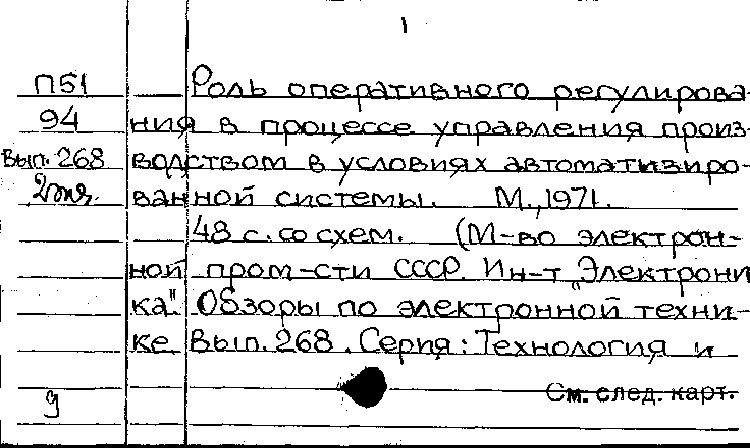 1
П51 Роль оперативного регулирова-
94 ния в процессе управления произ-
Вып. 268 водством в условиях автоматизиро-
2 экз. ванной системы. М., 1971.
48 с. со схем. (М-во электрон-
ной пром-сти СССР. Ин-т „Электрони
ка". Обзоры по электронной техни-
ке Вып. 268. Серия: Технология и
См. след. карт.